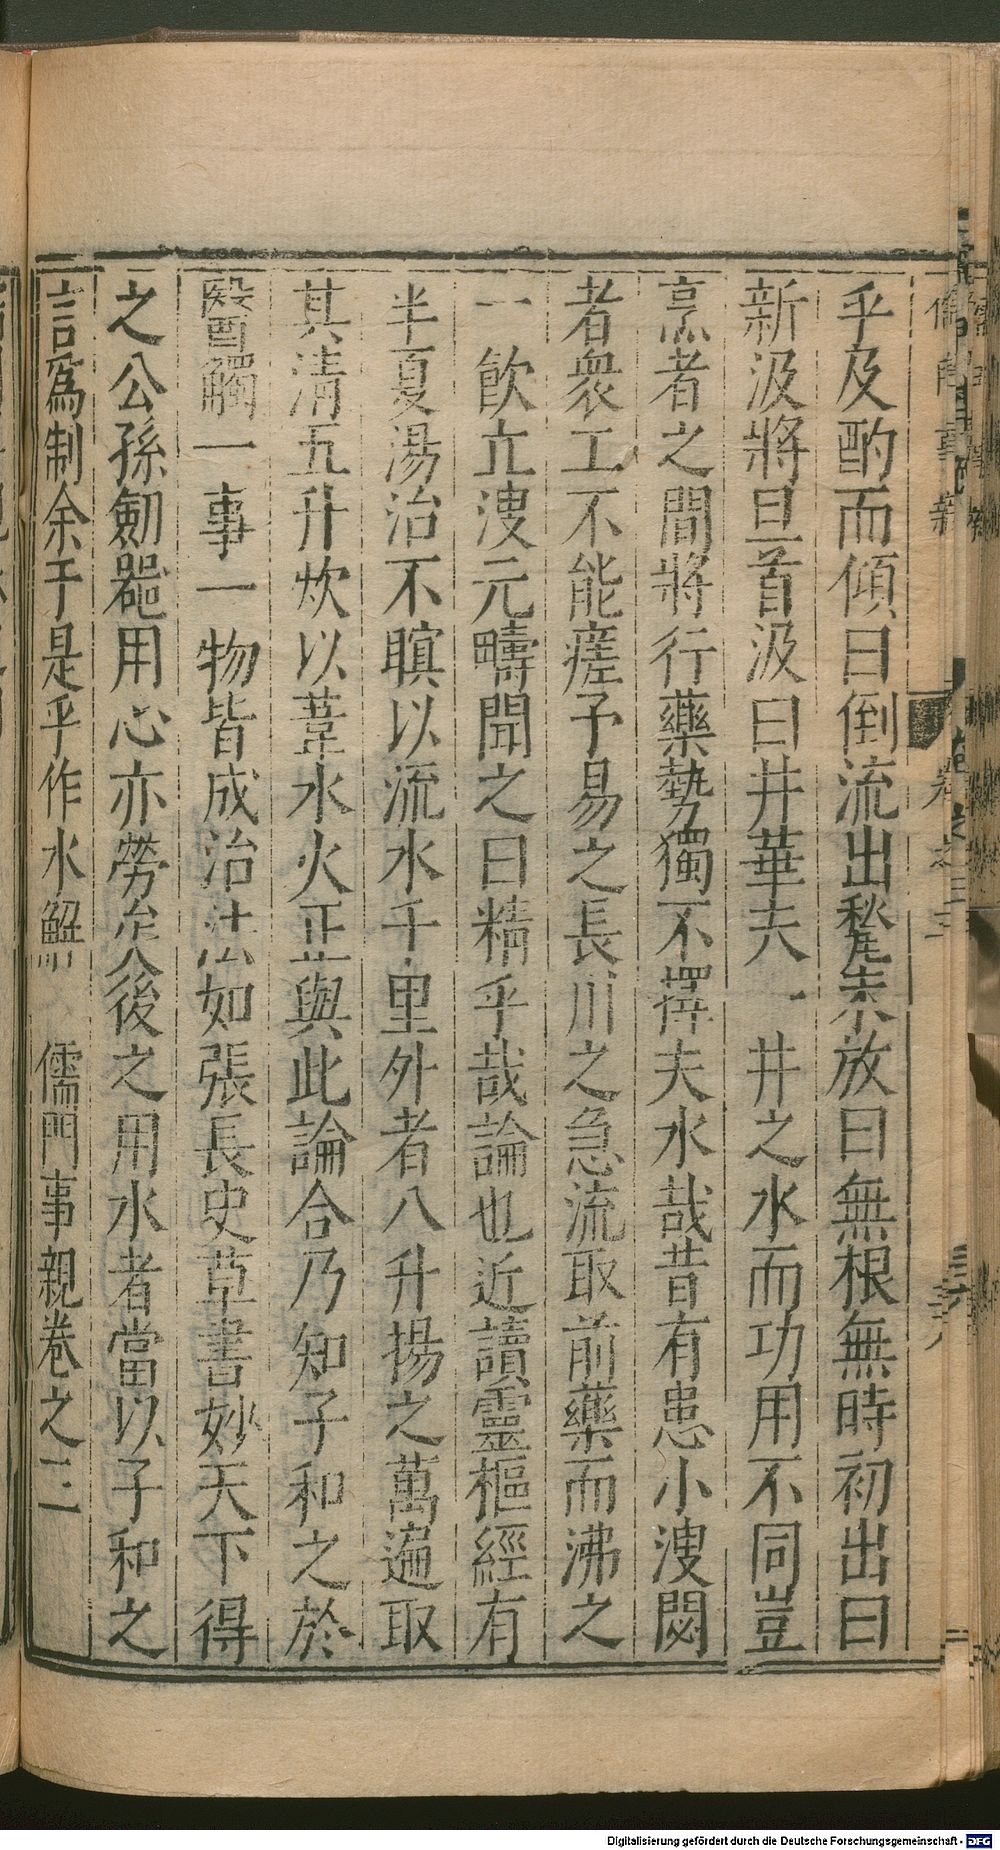 乎及酌而傾曰倒流出甃未放曰無根無時初出曰
新汲將旦首汲曰井華夫一井之水而功用不同豈
烹者之間將行藥勢獨不擇夫水哉昔有患小溲閟
者衆工不能瘥予易之長川之急流取前藥而沸之
一飲立溲元疇聞之曰精乎哉論也近讀靈樞經有
半夏湯治不瞑以流水千里外者八升揚之萬遍取
其淸五升炊以葦水火正與此論合乃知子和之於
醫觸一事一物皆成治法如張長史草書妙天下得
之公孫劒器用心亦勞矣後之用水者當以子和之
言爲制余于是乎作水解 儒門事親卷之三
Digitalisierung gefördert durch die Deutsche Forschungsgemeinschaft - DFG